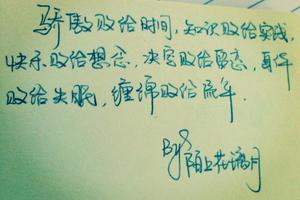 骄傲败给时间,知识败给实践,
快乐败给想念,决定败给留恋,身体
败给失眠,缠绵败给流年.
By 陌上花满月